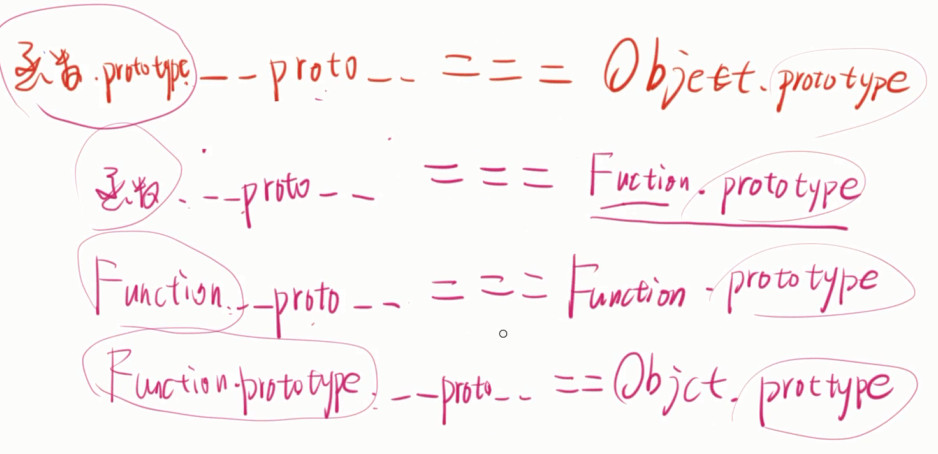 函数.prototype.__proto__ === Object.prototype
函数.__proto__ === Fuction.prototype
Function.__proto__ === Function.prototype
Function.prototype.__proto__ == Objct.prottype